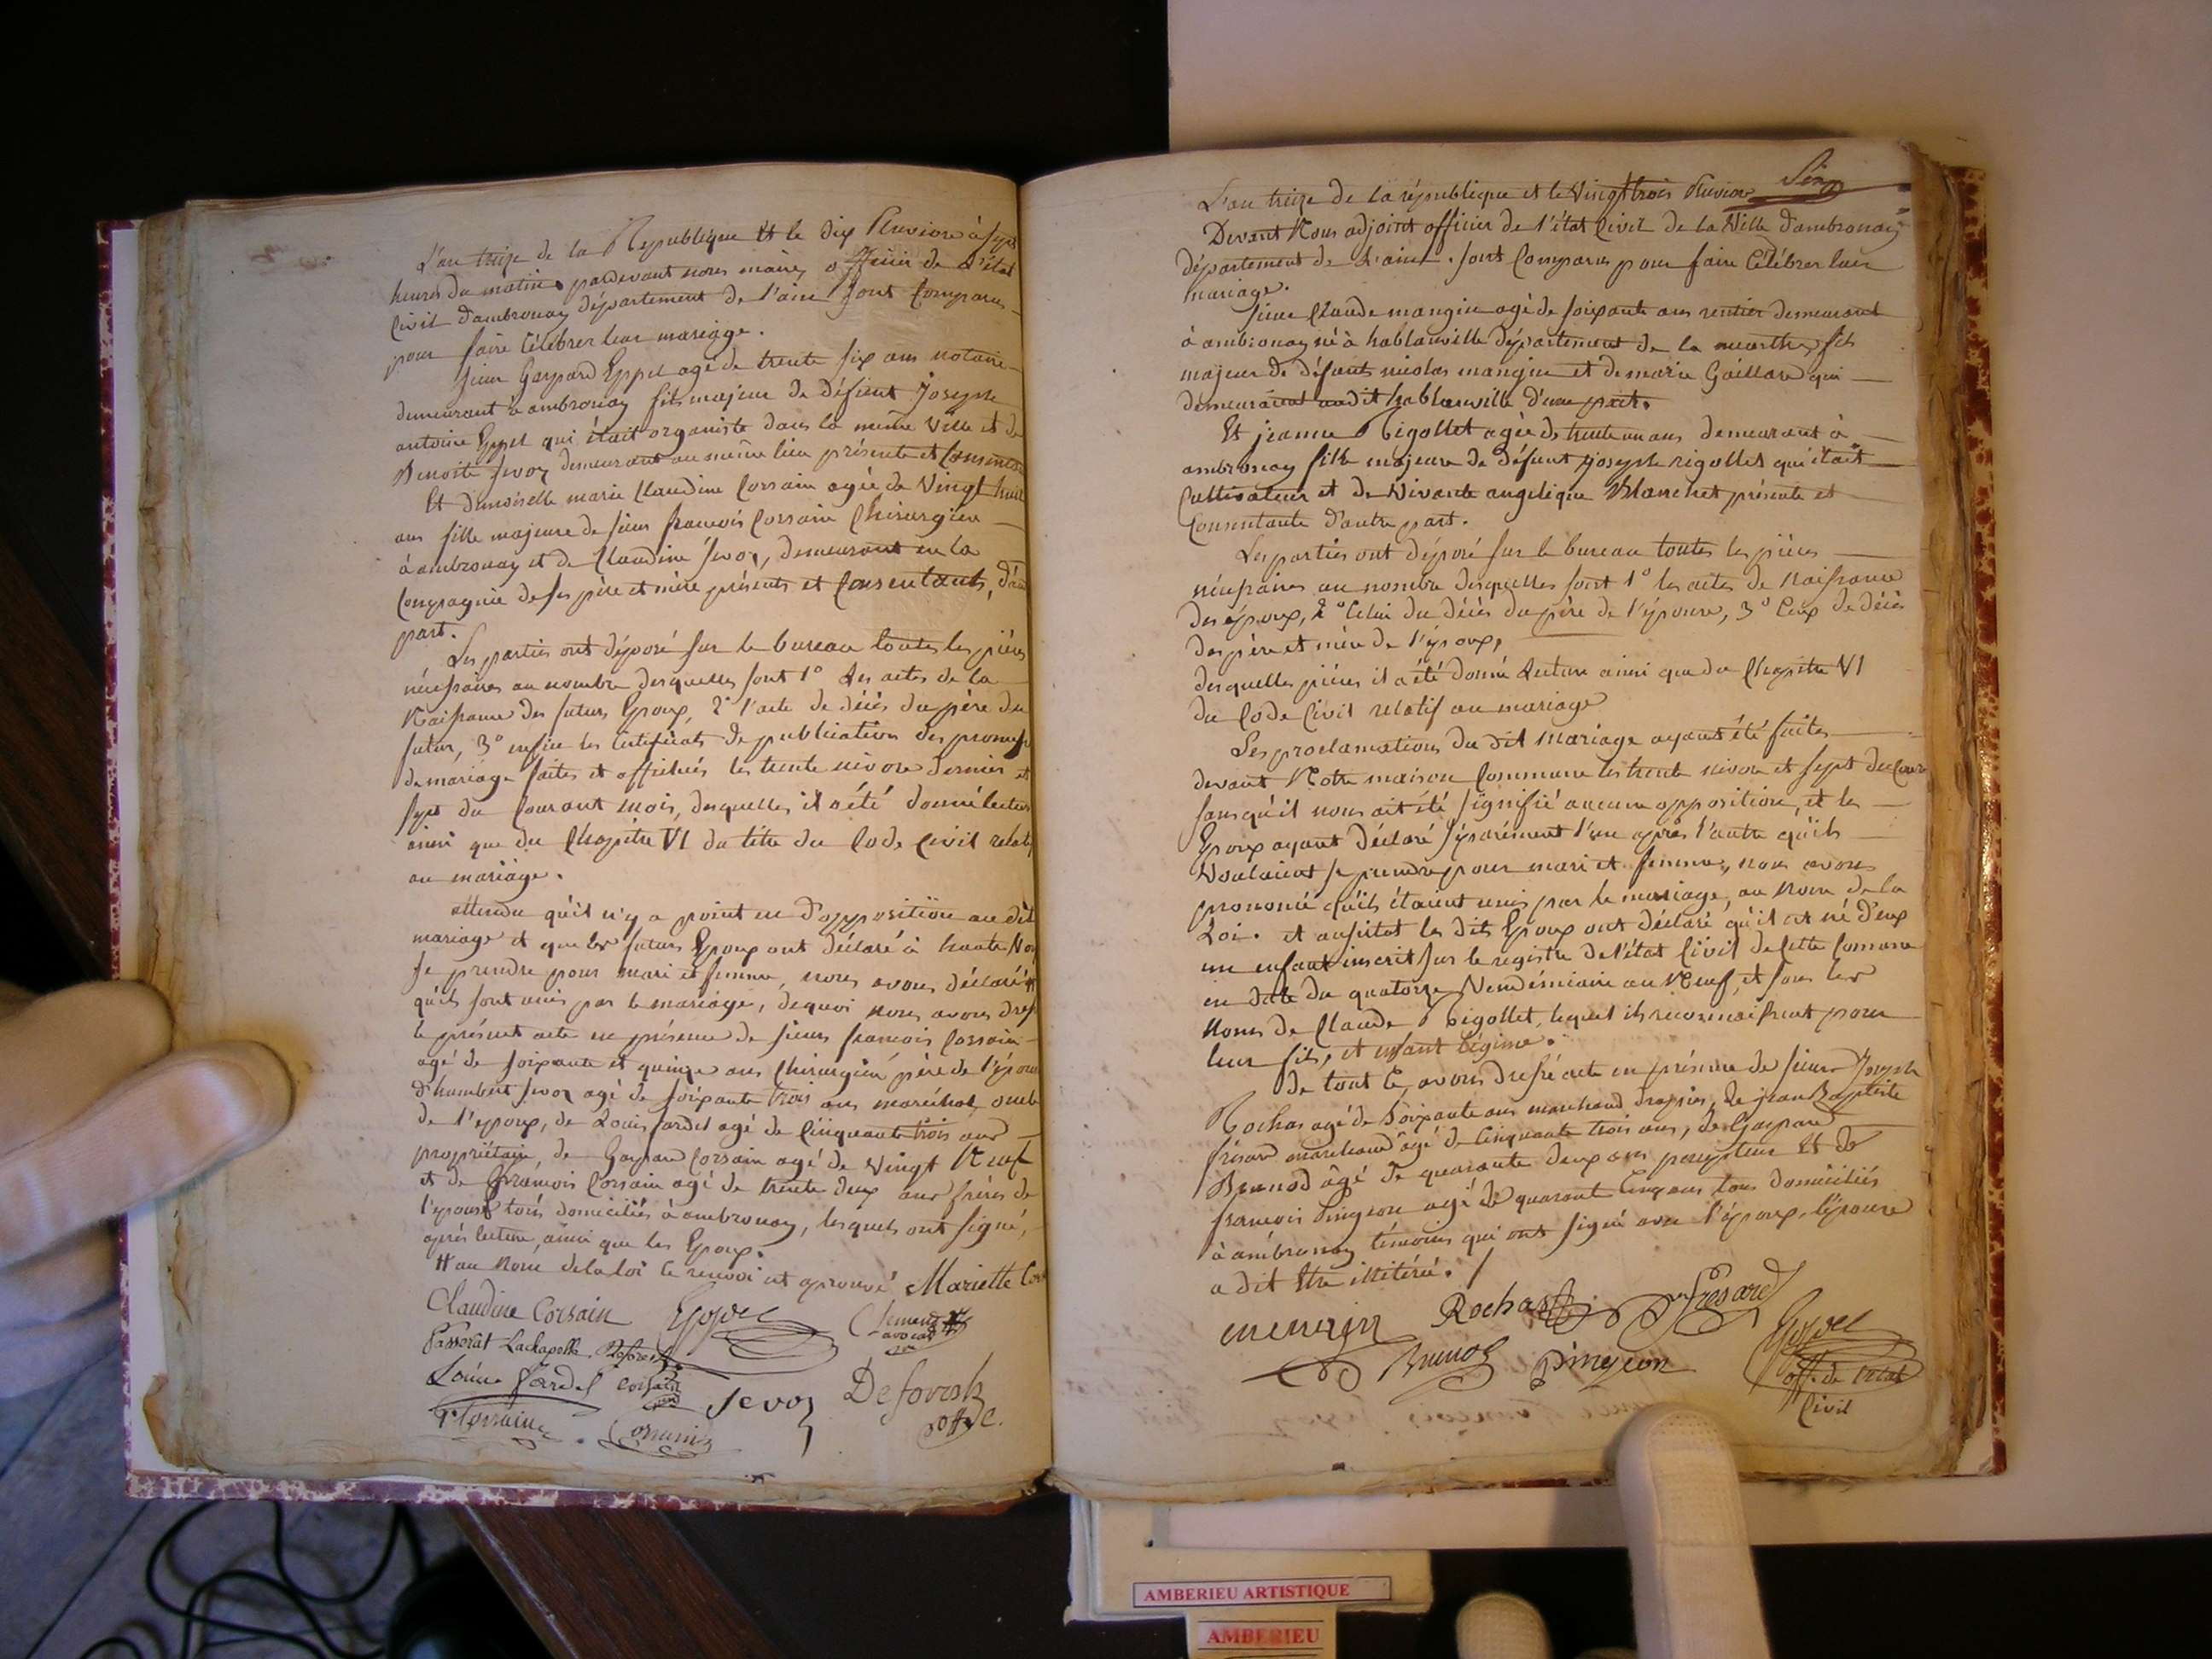 L'an treize de la Republique et le dix Pluviose à sept
heures du matin pardevant nous maire, officier de l'état
Civil d'ambronay département de l'ain sont Comparus
pour faire Célébrer leur mariage.
Sieur Gaspard Eppel agé de trente six ans notaire
demeurant à ambronay fils majeur de défunt Joseph
antoine Eppel qui était organiste dans la même Ville et de
Benoite Jevoz demeurant au même lieu présente et Consentante
Et demoiselle marie Claudine Corsain agée de Vingt huit
ans fille majeure de sieur francois Corsain Chirurgien
à ambronay et de Claudine Jevoz, demeurant en la
Compagnie de ses père et mère présents et Consentants, d'autre
part.
Les parties ont déposé sur le bureau toutes les pièces
nécessaires au nombre desquelles sont 1° Les actes de la
Naissance des futurs Epoux, 2° l'acte de décès du père du
futur, 3° enfin les Certificats de publication des promesses
de mariage faites et affichées les trente nivose dernier et
sept du Courant mois, desquelles il a été donné lecture
ainsi que du Chapitre VI du titre du Code Civil relatif
au mariage.
attendu qu'il n'y a point eu d'opposition au dit
mariage et que les futurs Epoux ont déclaré à haute Voix
se prendre pour mari et femme, nous avons déclaré #
qu'ils sont unis par le mariage, dequoi nous avons dressé
le présent acte en présence de sieurs francois Corsain
agé de soixante et quinze ans Chirurgien père de l'épouse
d'humbert Jevoz agé de soixante trois ans maréchal, oncle
de l'epoux, de Louis fardel agé de Cinquante trois ans
propriétaire, de Gaspard Corsain agé de Vingt Neuf
et de francois Corsain agé de trente deux ans frères de
l'épouse tous domiciliés à ambronay, lesquels ont signé,
après lecture, ainsi que les Epoux.
# au Nom de la loi le renvoi est aprouvé Mariette Cor
Claudine Corsain Eppel
avocat
Passerat Lachapelle
Louis fardel Corsain Jevoz Deforest
Corsain off. C.
L'an treize de la république et le Vingt trois Pluviose
Devant Nous adjoint officier de l'état Civil de la Ville d'ambronay
département de L'ain. sont Comparus pour faire Célébrer leur
mariage.
Sieur Claude mangin agé de soixante ans rentier demeurant
à ambronay né à hablainville département de la meurthe, fils
majeur de défunts nicolas mangin et de marie Gaillard qui
demeuraient audit hablainville d'une part.
Et jeanne Rigollet agée de trente un ans demeurant à
ambronay fille majeure de défunt joseph rigollet qui était
Cultivateur et de Vivante angelique Blanchet présente et
Consentante d'autre part.
Les parties ont déposé sur le bureau toutes les pièces
nécessaires au nombre desquelles sont 1° les actes de Naissance
des époux, 2° Celui du décès du père de l'épouse, 3° Ceux de décès
des père et mère de l'époux,
desquelles pièces il a été donné Lecture ainsi que du Chapitre VI
du Code Civil relatif au mariage
Les proclamations du dit Mariage ayant été faites
devant Notre maison Commune les trente nivose et sept du Cour
sans qu'il nous ait été signifié aucune opposition, et les
Epoux ayant déclaré séparément l'un après l'autre qu'ils
Voulaient se prendre pour mari et femme, nous avons
prononcé qu'ils étaient unis par le mariage, au Nom de la
Loi. et aussitot les dits Epoux ont déclaré qu'il est né d'eux
un enfant inscrit sur le registre de l'état Civil de Cette Commune
en date du quatorze Vendémiaire an Neuf, et sous les
Noms de Claude Rigollet, lequel ils reconnaissent pour
leur fils, et enfant légitime.
De tout Ce, avons dressé acte en présence de sieurs Joseph
Rochas agé de soixante ans marchand drapier, de jean Baptiste
frésard marchand agé de Cinquante trois ans, de Gaspard
Brunod agé de quarante deux ans percepteur Et de
francois Pingeon agé de quarante Cinq ans tous domiciliés
à ambronay témoins qui ont signé avec l'époux, l'épouse
a dit Etre illitérée.
Rochas frésard
Brunod Pingeon Eppel
off. de l'état
Civil
AMBERIEU ARTISTIQUE
AMBERIEU